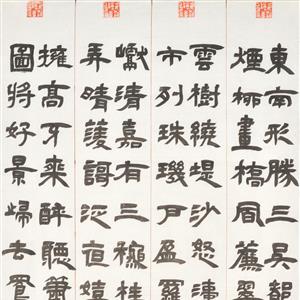 東南形勝三吳都
煙柳畫橋風簾翠
雲樹繞堤沙怒濤
市列珠璣戶盈羅
巘清嘉有三秋桂
弄晴菱謌泛夜嬉
擁高牙乘醉聽簫
圖將好景歸去鳳